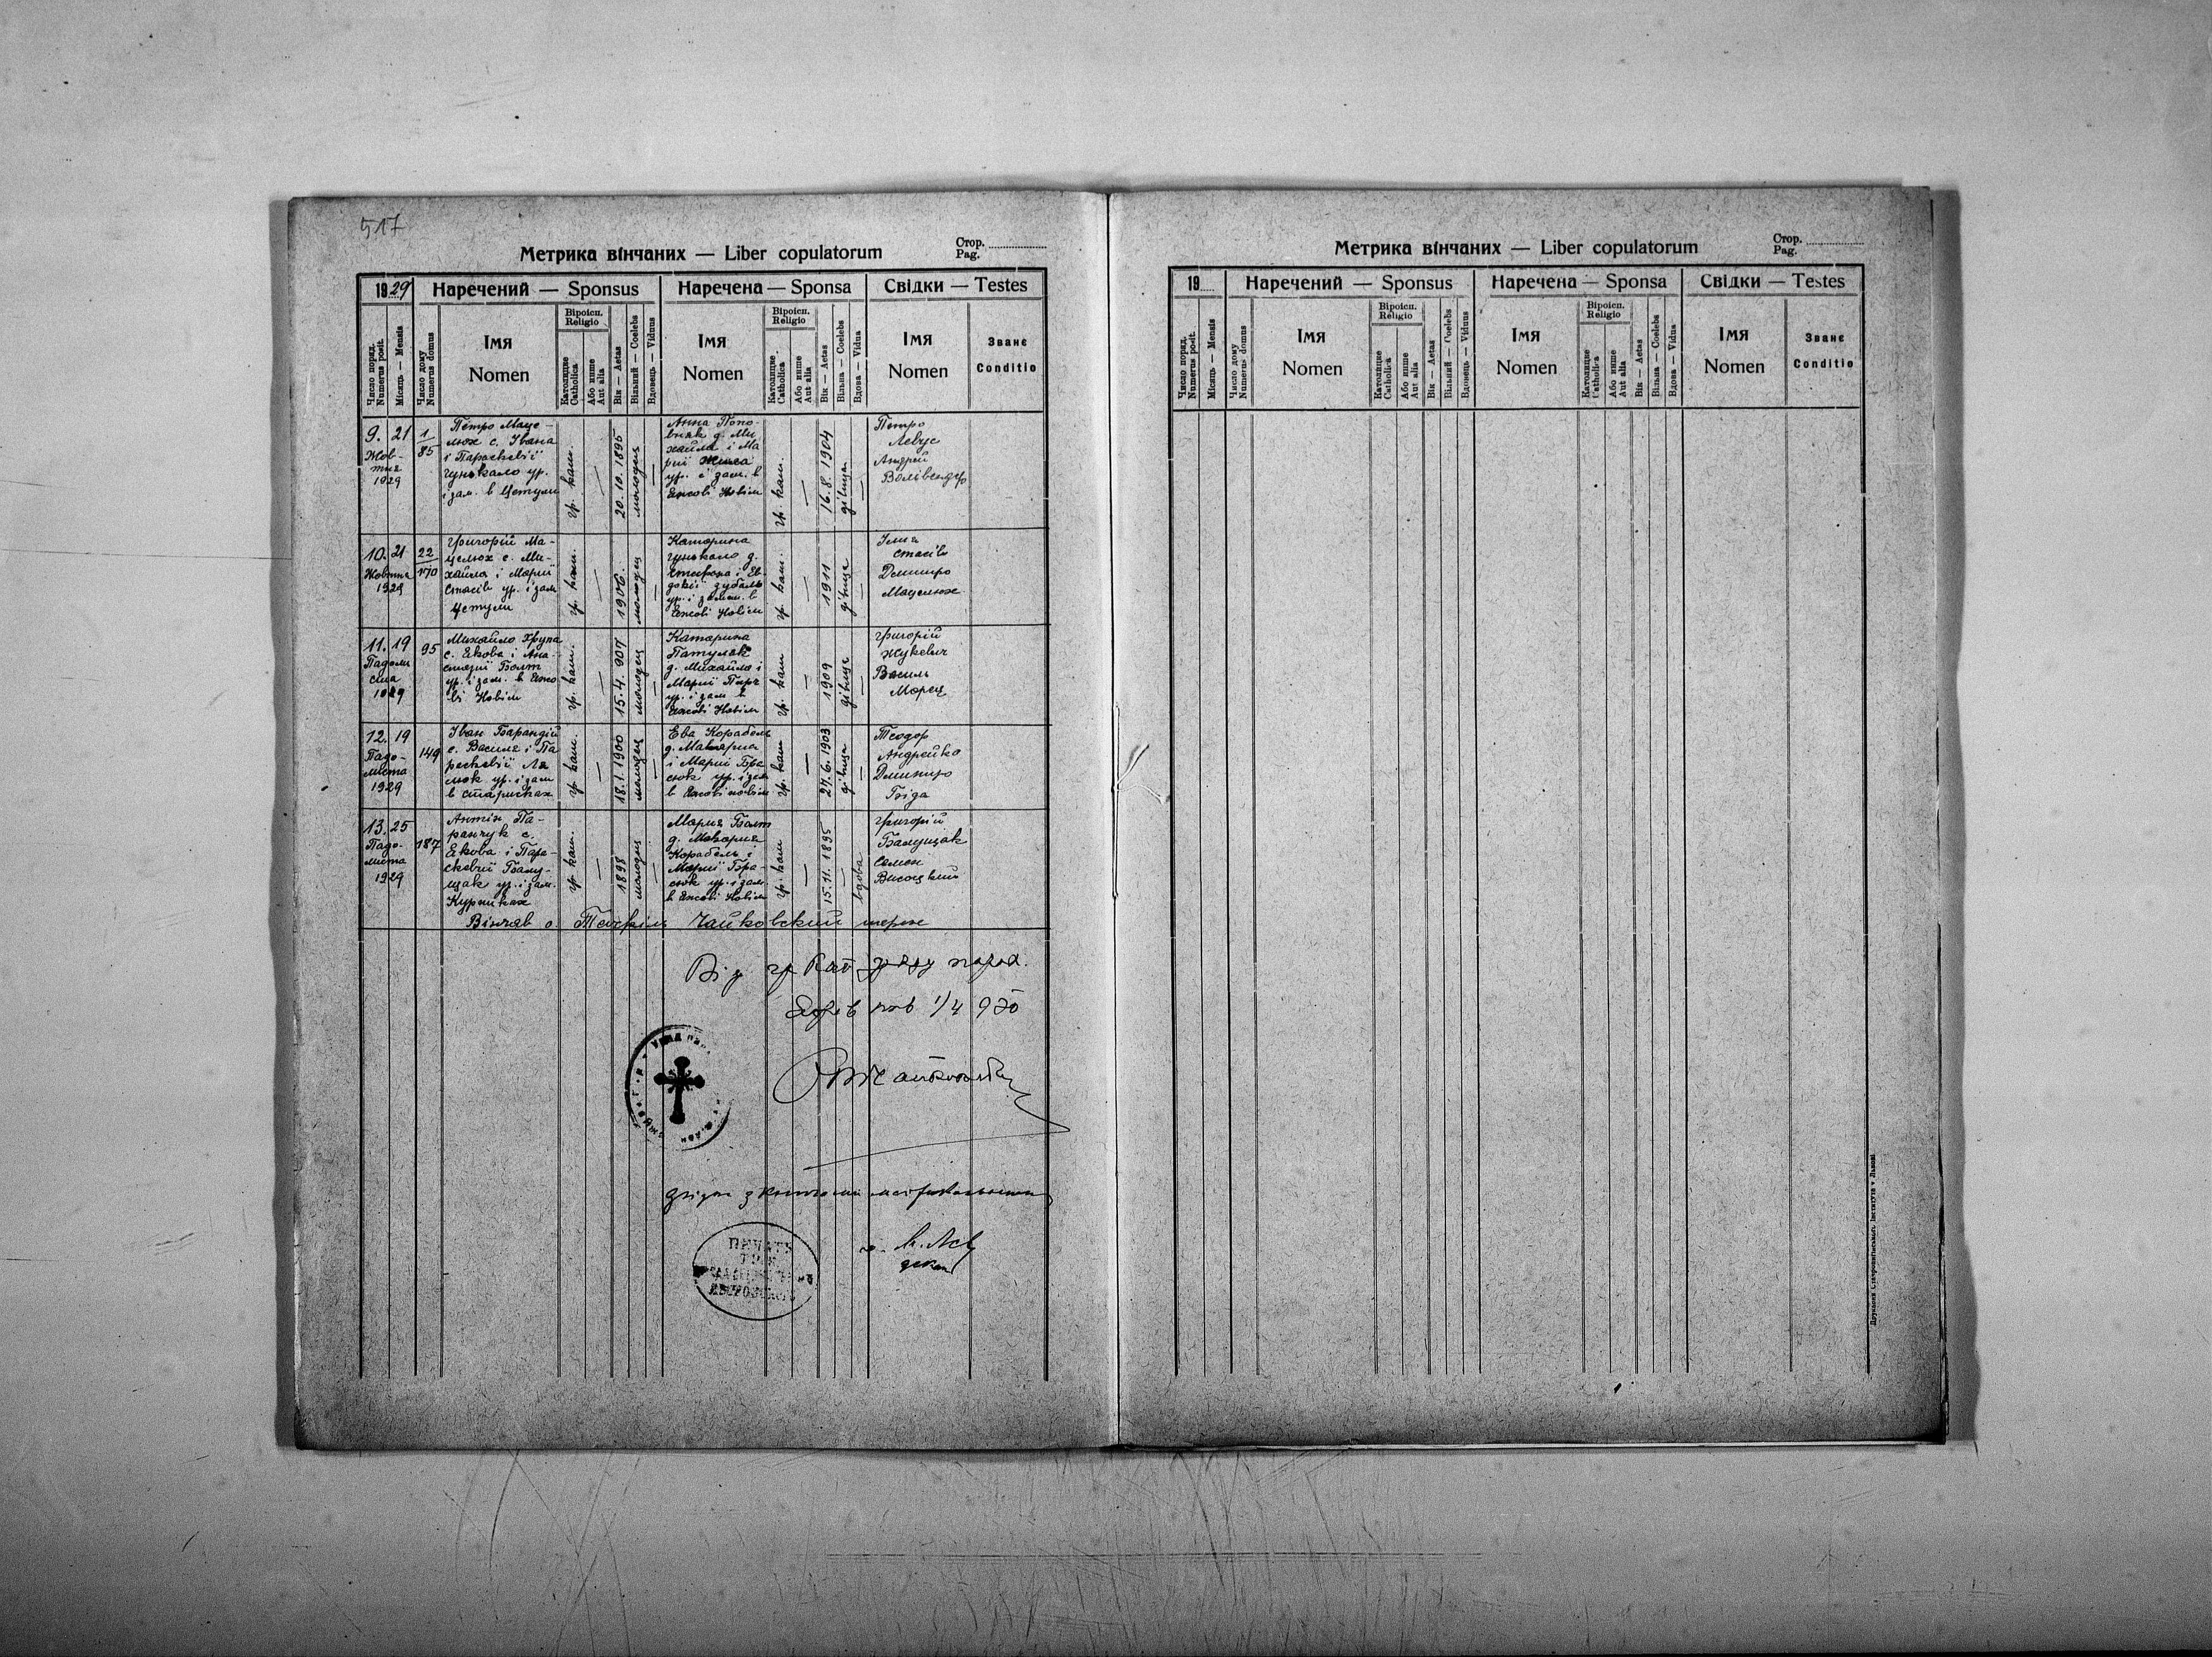 517
Метрика вінчаних — Liber copulatorum
Стор.
Pag.
1929
Наречений — Sponsus
Наречена — Sponsa
Свідки — Testes
Число поряд.
Numerus posit.
Місяць — Mensis
Число дому
Numerus domus
Імя
Nomen
Віроісп.
Religio
Католицке
Catholica
Або инше
Aut alia
Вік — Aetas
Вільний — Coelebs
Вдовець — Viduus
Імя
Nomen
Віроісп.
Religio
Католицке
Catholica
Або инше
Aut alia
Вік — Aetas
Вільна — Coelebs
Вдова — Vidua
Імя
Nomen
Званє
Conditio
9. 21
Жов-
тня
1929
1
85
Петро Маце-
люх с. Івана
і Параскевії
Гунькало ур.
і зам. в Цетули
гр. кат.
20. 10. 1895
молодец
Анна Попо-
вняк д. Ми
хайла і Ма
рії
ур. і зам. в
Яжові Новім
гр. кат.
16. 8. 1904
дівиця
Петро
Левус
Андрей
10. 21
Жовтня
1929
22
170
Григорій Ма-
целюх с. Ми-
хайла і Марії
Стасів ур. і зам
Цетули
гр. кат.
1906.
молодец
Катарина
Гунькало д.
Стефана і Ев-
докії Зубаль
ур. і замеш. в
Яжові Новім
гр. кат.
1911
дівиця
Ілия
Стасів
Дмитро
Мацелюх
11. 19
Падоли
ста
1929
95
Михайло Хрупа
с. Якова і Ана-
стазії Болт
ур. і зам. в Яжо
ві Новім
гр. кат.
15. 4. 907
молодец
Катарина
Патулак
д. Михайла і
Марії
ур. і зам в
Яжові Новім
гр. кат
1909
дівиця
Григорій
Жукевич
Василь
Морец
12. 19
Падо-
листа
1929
149
Іван Барандій
с. Василя і Па
раскевії Ля
люк ур. і зам
в Старисках
гр. кат.
18. 1. 1900
молодец
Ева Корабель
д. Макария
і Марії Бра
сюк ур. і зам
в Яжові новім
гр. кат
27. 6. 1903
дівиця
Теодор
Андрейко
Дмитро
Біда
13. 25
Падо-
листа
1929
187
Антін Па-
ранчук с.
Якова і Пара-
скевії Балу-
щак ур. і зам.
Курниках
гр. кат.
1898
молодец
Мария Болт
д. Макария
Корабель і
Марії Бра-
сюк ур. і зам.
в Яжові Новім
гр. кат
15. 11. 1895
вдова
Григорій
Балущак
Семен
Висоцкий
Вінчав о. Теофіль Чайковский парох
Від гр кат уряду парох.
Яжів нов 1/4 930
Згідне з книгами метрикальними
декан
ПЕЧАТЬ
Метрика вінчаних — Liber copulatorum
Стор.
Pag.
19
Наречений — Sponsus
Наречена — Sponsa
Свідки — Testes
Число поряд.
Numerus posit.
Місяць — Mensis
Число дому
Numerus domus
Імя
Nomen
Віроісп.
Religio
Католицке
Catholica
Або инше
Aut alia
Вік — Aetas
Вільний — Coelebs
Вдовець — Viduus
Імя
Nomen
Віроісп.
Religio
Католицке
Catholica
Або инше
Aut alia
Вік — Aetas
Вільна — Coelebs
Вдова — Vidua
Імя
Nomen
Званє
Conditio
Друкарня Ставропигійського Інститута у Львові